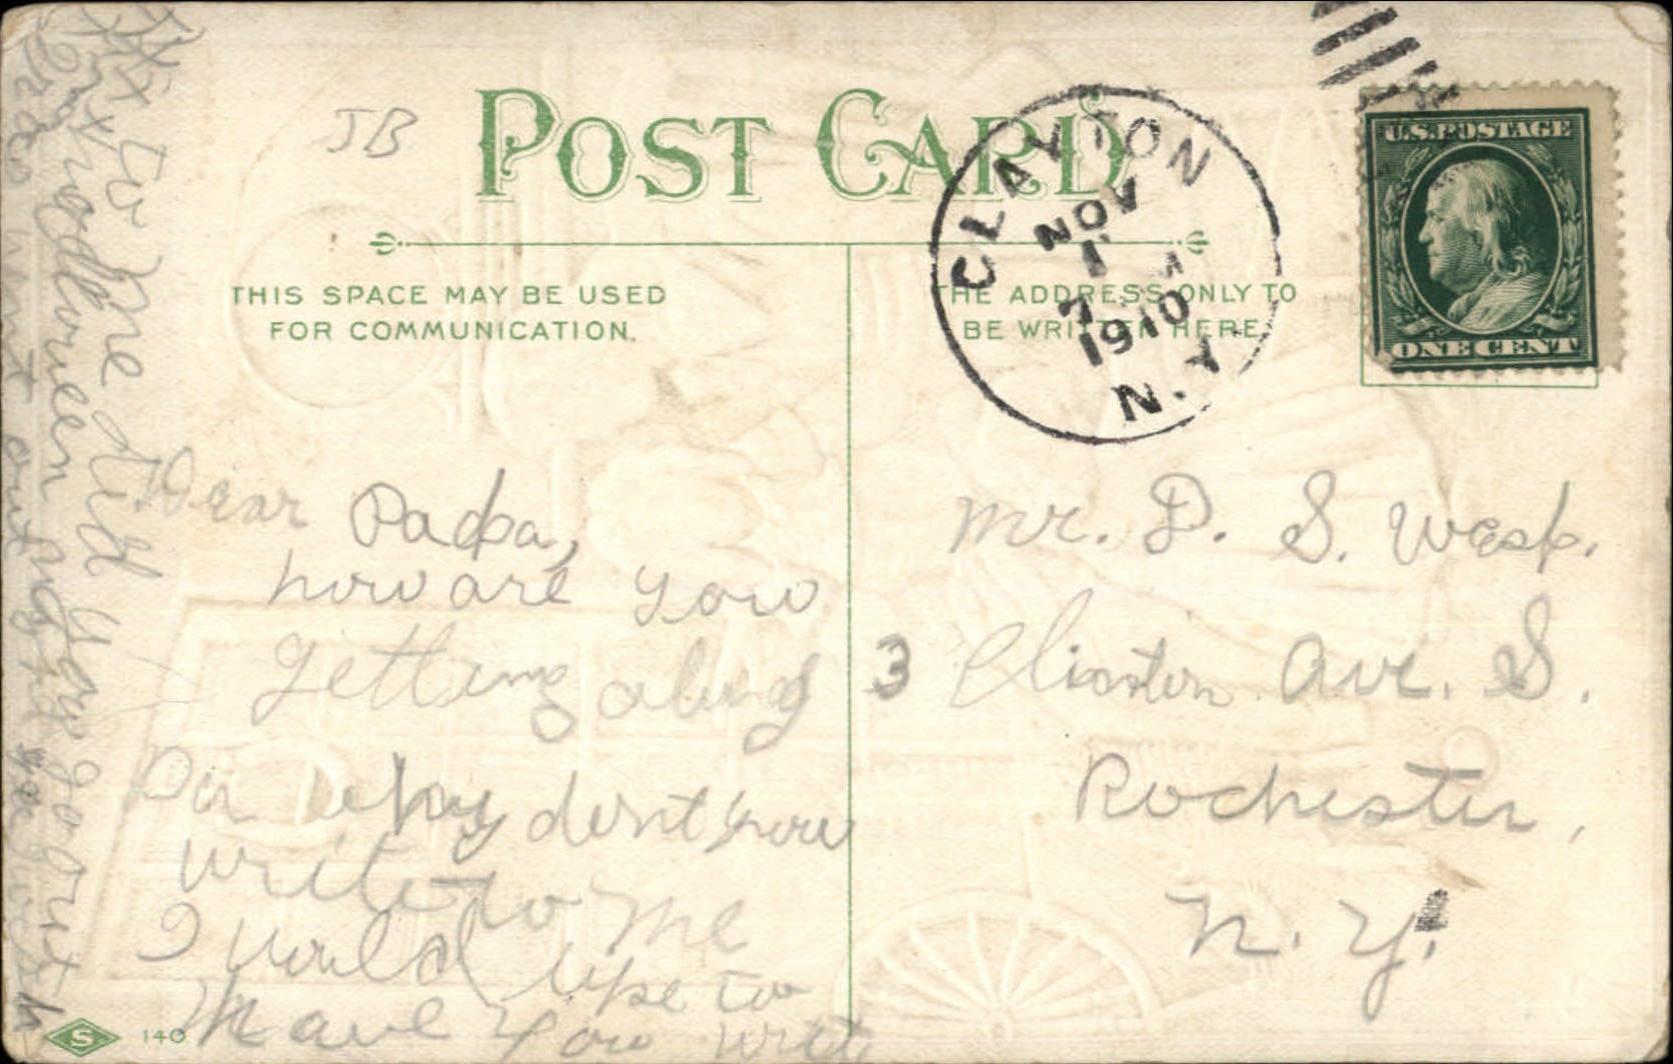 JB
POST CARD
THIS SPACE MAY BE USED
FOR COMMUNICATION.
THE ADDRESS ONLY TO
BE WRITTEN HERE
CLAYTON
NOV
1
7 M
1910
N.Y.
U.S. POSTAGE
ONE CENT
Dear Papa,
how are you
getting along
Pa why dont you
write to me
I would like to
have you write
to me did you go out
halloween night
out
Mr. D. S. Wesp.
3 Clinton Ave. S.
Rochester,
N. Y.
S 140